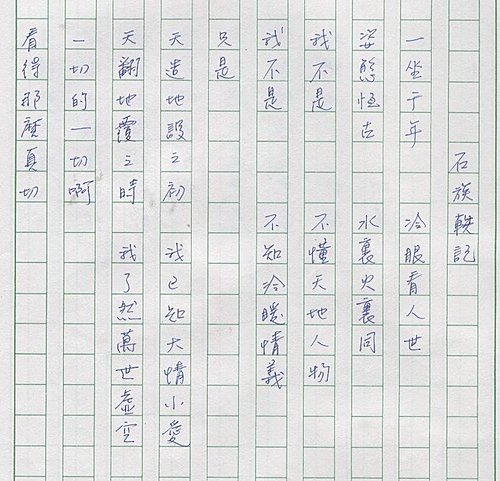 石族軼記
一坐千年 冷眼看人世
姿態恒古 水裏火裏同
我不是 不懂天地人物
我不是 不知冷暖情義
只是
天造地設之初 我已知大情小愛
天翻地覆之時 我了然萬世虛空
一切的一切啊
看得那麼真切